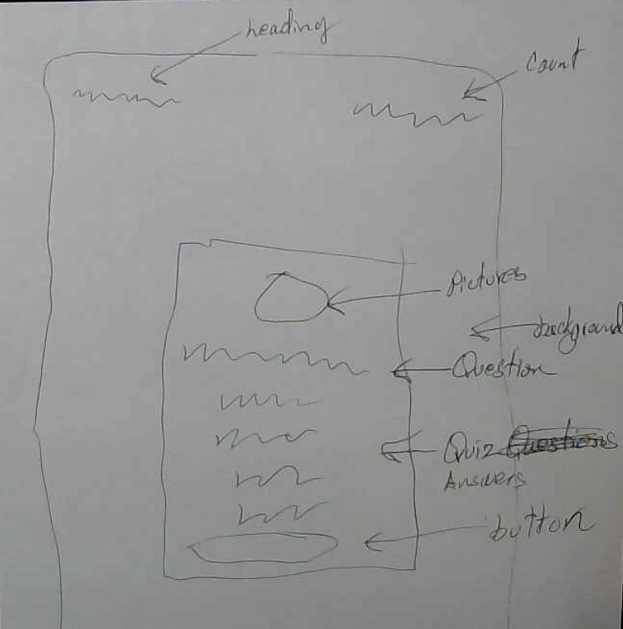 heading
count
Pictures
backgound
Question
Quiz Questions
Answers
button